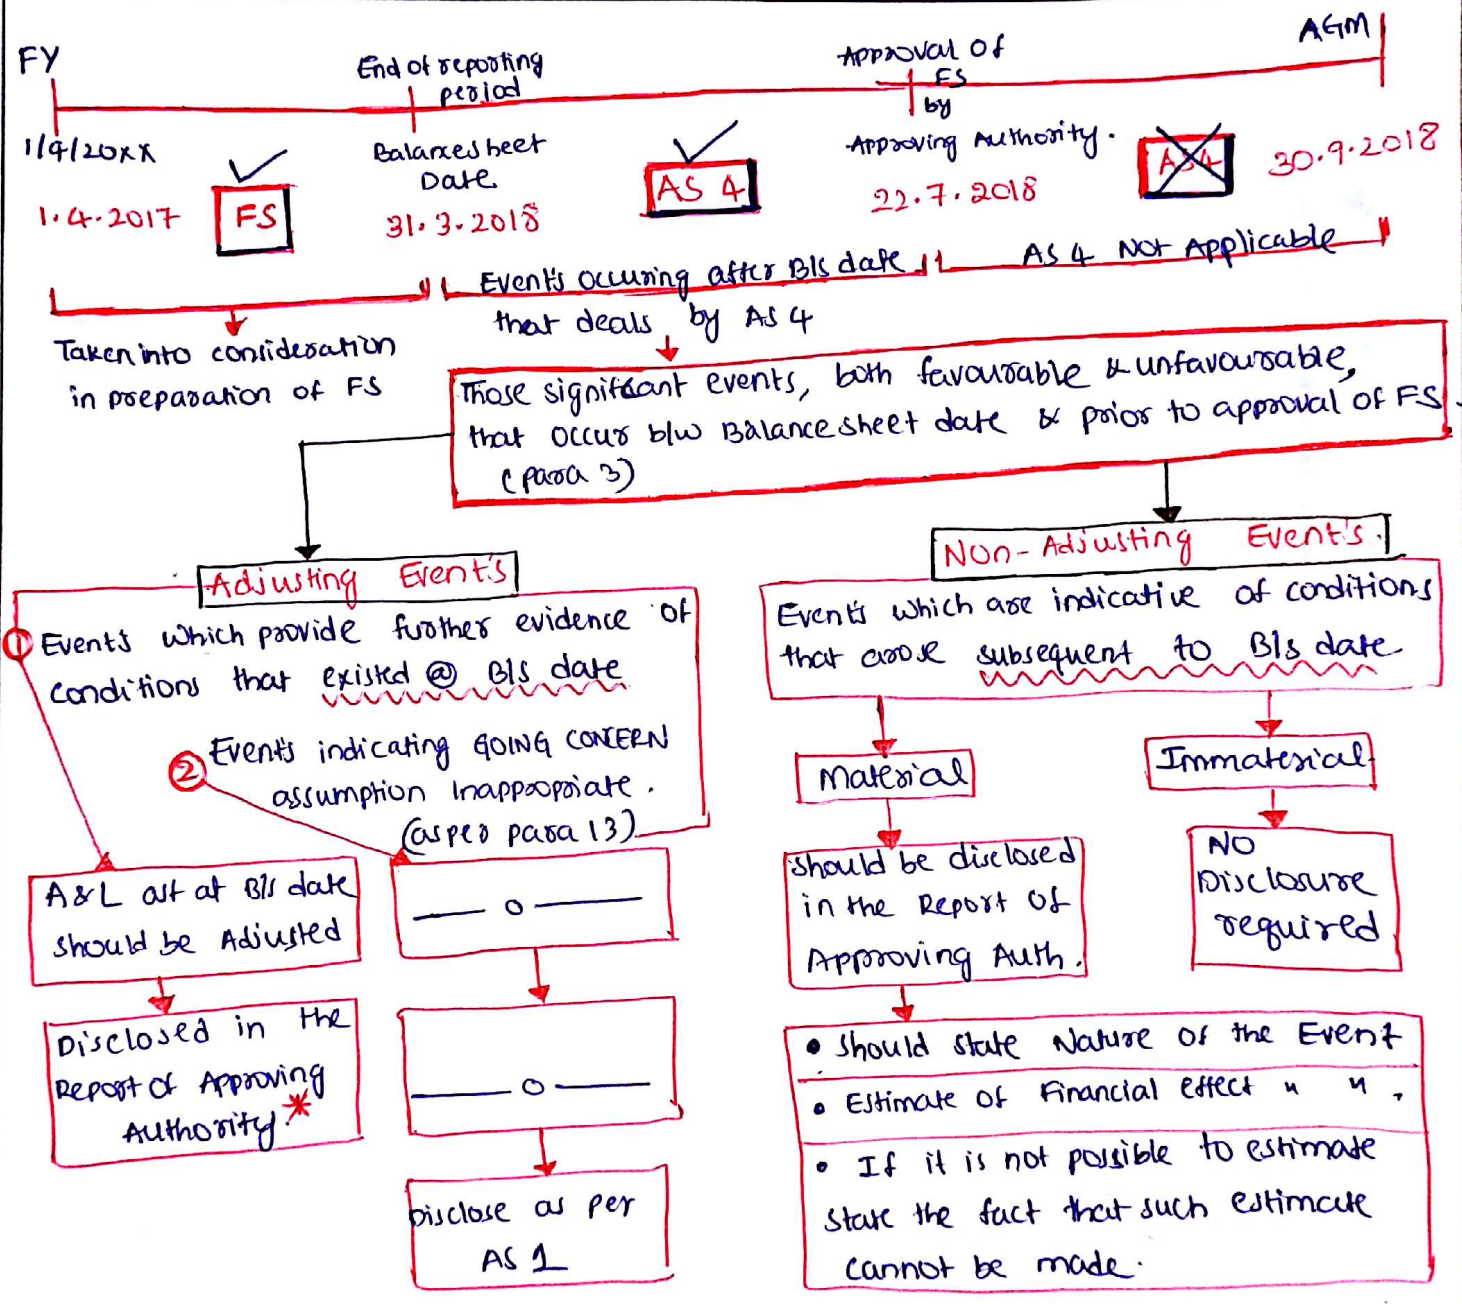 FY
End of reporting
period
Approval of
FS
by
AGM
1/4/20XX
Balancesheet
Date
Approving Authority.
1.4.2017
FS
31.3.2018
AS 4
22.7.2018
AS4
30.9.2018
Event's occuring after B/s date
that deals by AS 4
AS 4 Not Applicable
Taken into consideration
in preparation of FS
Those significant events, both favourable & unfavourable,
that occur b/w Balancesheet date & prior to approval of FS.
(para 3)
Adjusting Event's
① Event's which provide further evidence of
conditions that existed @ B/s date
② Event's indicating GOING CONCERN
assumption Inappropriate.
(as per para 13)
A&L as at B/s date
should be Adjusted
Disclosed in the
Report of Approving
Authority.*
—— o ——
—— o ——
Disclose as per
AS 1
Non-Adjusting Event's.
Event's which are indicative of conditions
that arose subsequent to B/s date
Material
Immaterial
Should be disclosed
in the Report of
Approving Auth.
NO
Disclosure
required
• Should state Nature of the Event
• Estimate of Financial effect " " .
• If it is not possible to estimate
state the fact that such estimate
cannot be made.